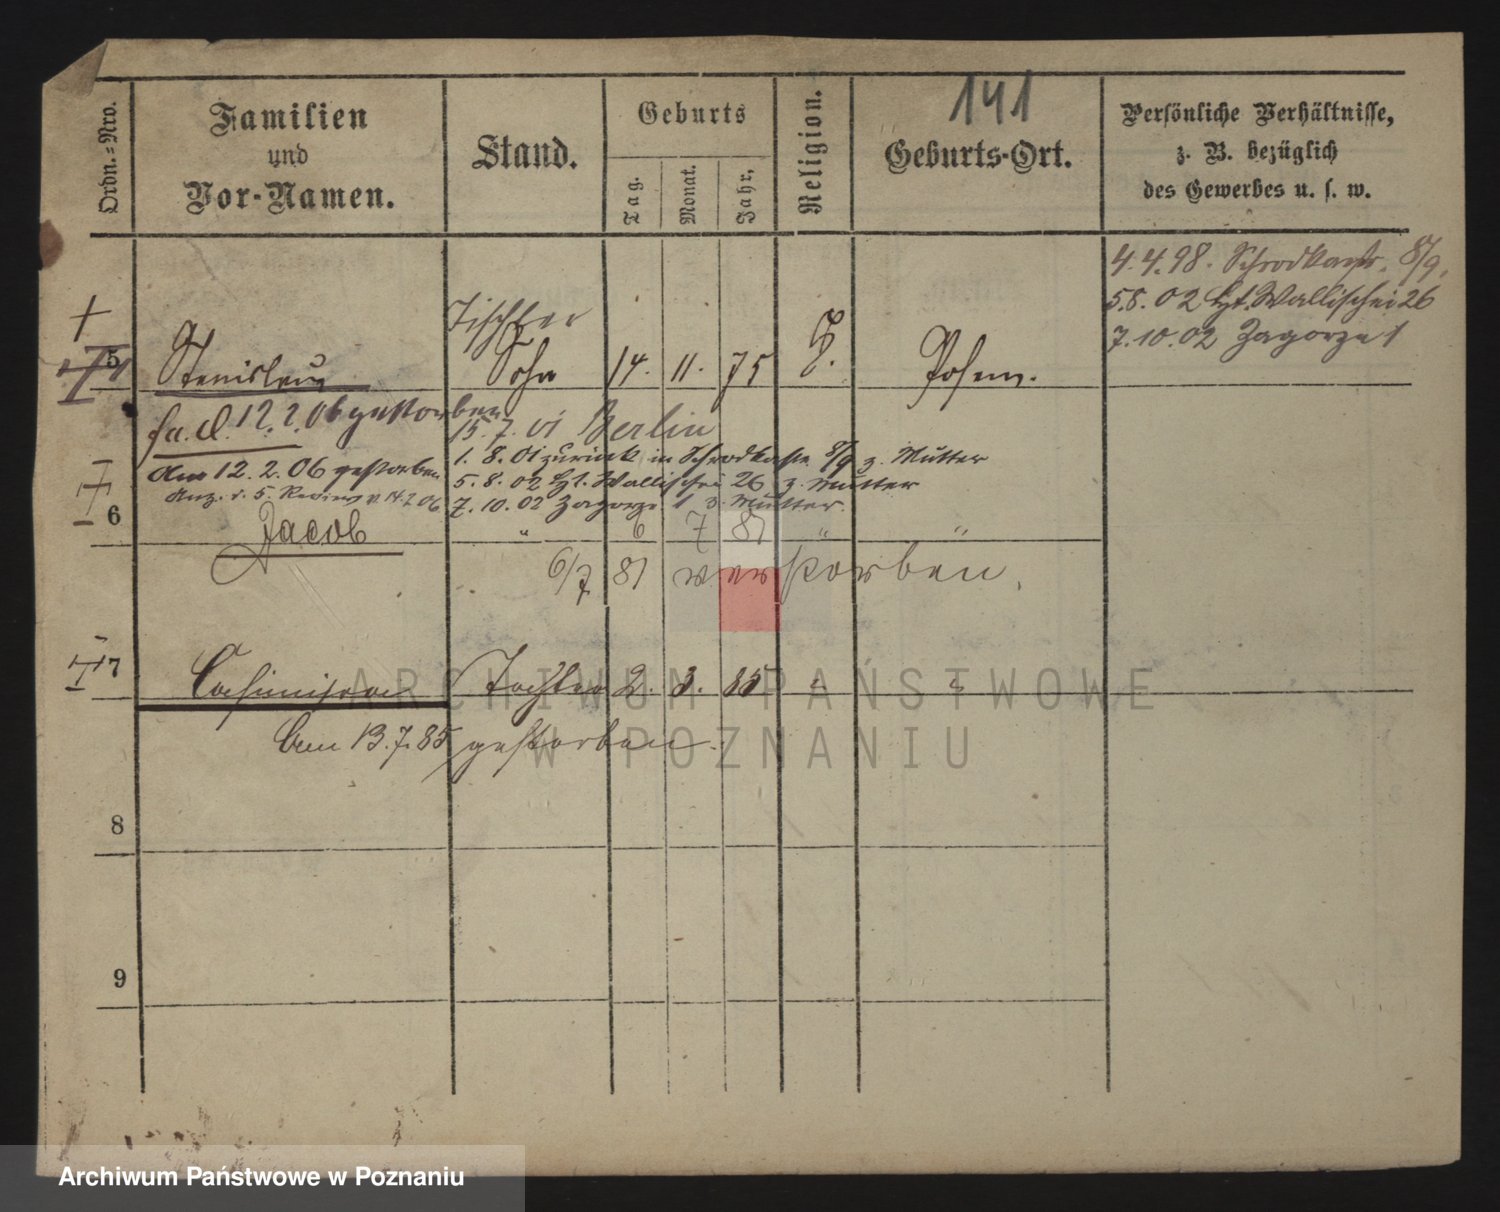 141
Ordn.=Nro.
Familien
und
Vor-Namen.
Stand.
Geburts
Tag.
Monat.
Jahr.
Religion.
Geburts-Ort.
Persönliche Verhältnisse,
z. B. bezüglich
des Gewerbes u. s. w.
4.4.98. Schrodkastr. 8/9.
5.8.02 Ht. Wallischei 26
7.10.02 Zagorze 1
Tischler
5 Stanislaus Sohn 14. 11. 75 Posen.
12.2.06 gestorben
15.7.01 Berlin
1.8.01 zurück in 8/9 z. Mutter
am 12.2.06 gestorben
5.8.02 Ht. Wallischei 26 z. Mutter
14.2.06
7.10.02 Zagorze 1 z. Mutter.
6 Jacob " 6 7 81 " "
6/7 81 verstorben.
7 Casimira Tochter 2. 3. 85 " "
am 13.7.85 gestorben.
8
9
ARCHIWUM PAŃSTWOWE
W POZNANIU
Archiwum Państwowe w Poznaniu